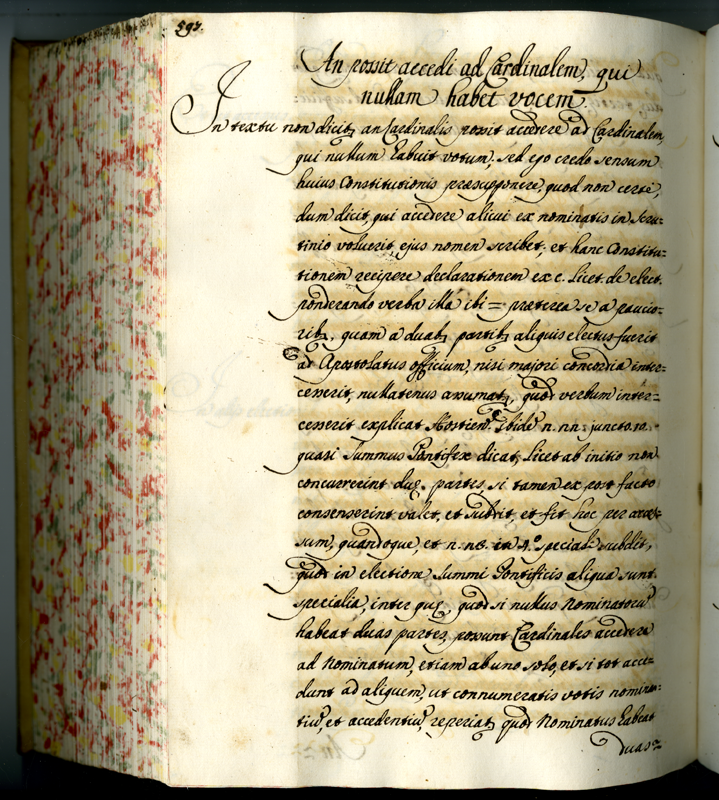 597.
An possit accedi ad Cardinalem, qui
nullam habet vocem.
In textu non dicit, an Cardinalis possit accedere ad Cardinalem,
qui nullum habuit votum, sed ego credo sensum
huius Constitutionis præsupponere, quod non certè,
dum dicit, qui accedere alicui ex nominatis in Scru=
tinio voluerit, ejus nomen scribet, et hanc Constitu=
tionem recipere declarationem ex c. Licet. de elect.
ponderando verba illa ibi = præterea se a paucio=
ribꝫ, quam a duabꝫ partibꝫ aliquis electus fuerit
ad Apostolatus officium, nisi major concordia inter=
cesserit, nullatenus assumatꝫ, quod verbum inter=
cesserit explicat Hostien. ibidē n. nn. juncto. 10.
quasi Summus Pontifex dicat, Licet ab initio non
concurrerint duę partes, si tamen ex post facto
consenserint valet, et et fit hoc per acces=
sum, quandoque, et n. n6. in 4.º speciali subdit,
quod in electione Summi Pontificis aliqua sunt
specialia, inter quę, quod si nullus Nominatorū
habeat duas partes, possunt Cardinales accedere
ad Nominatum, etiam ab uno solo, et si tot acce=
dunt ad aliquem, ut connumeratis votis nomina=
tiū, et accedentiū, reperiatꝫ quod Nominatus habeat
duas=